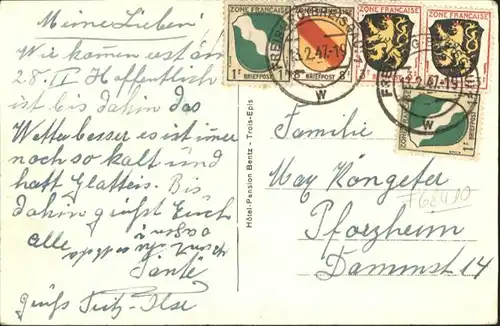 Meine Lieben
Wir kommen erst am
28. II. Hoffentlich
ist bis dahin das
Wetter besser es ist immer
noch so kalt und
hatt Glatteis. Bis
dahin grüßt Euch
alle
Tante
Gruß Fritz-Ilse
Hôtel-Pension Bentz - Trois-Epis
ZONE FRANÇAISE
1 BRIEFPOST
ZONE FRANÇAISE
8 BRIEFPOST 8
ZONE FRANÇAISE
ZONE FRANÇAISE
2.2.47-19
W
2.2.47-19
W
Familie
May Köngeter
Pforzheim
Dammstr 14